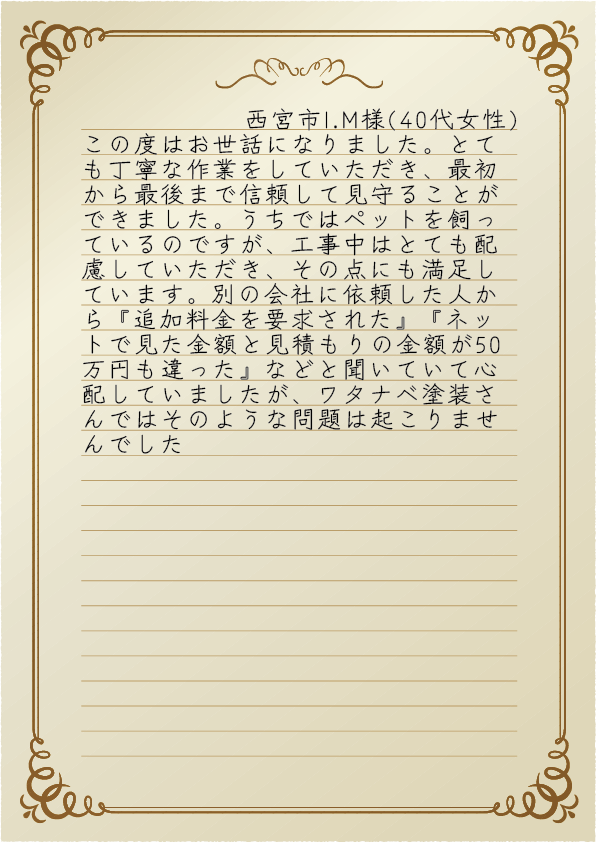 西宮市I.M様(40代女性)
この度はお世話になりました。とて
も丁寧な作業をしていただき、最初
から最後まで信頼して見守ることが
できました。うちではペットを飼っ
ているのですが、工事中はとても配
慮していただき、その点にも満足し
ています。別の会社に依頼した人か
ら『追加料金を要求された』『ネッ
トで見た金額と見積もりの金額が50
万円も違った』などと聞いていて心
配していましたが、ワタナベ塗装さ
んではそのような問題は起こりませ
んでした